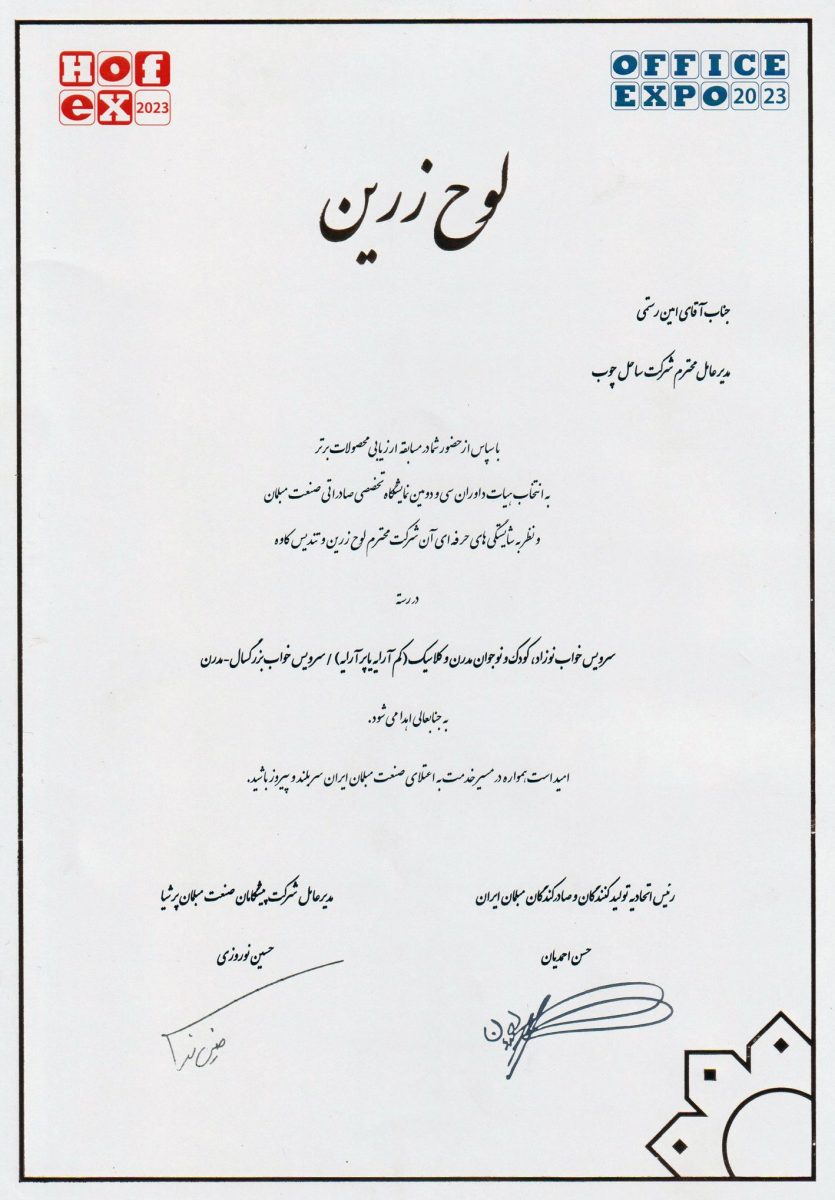 Hof
ex 2023
OFFICE
EXPO 20 23
لوح زرین
جناب آقای امین رستمی
مدیرعامل محترم شرکت ساحل چوب
با سپاس از حضور شما در مسابقه ارزیابی محصولات برتر
به انتخاب هیات داوران سی و دومین نمایشگاه تخصصی صادراتی صنعت مبلمان
و نظر به شایستگی های حرفه ای آن شرکت محترم لوح زرین و تندیس کاوه
در رسته
سرویس خواب نوزاد، کودک و نوجوان مدرن و کلاسیک (کم آرایه یا پر آرایه) / سرویس خواب بزرگسال-مدرن
به جنابعالی اهدا می شود.
امید است همواره در مسیر خدمت به اعتلای صنعت مبلمان ایران سربلند و پیروز باشید.
رئیس اتحادیه تولید کنندگان و صادرکنندگان مبلمان ایران
حسن احمدیان
مدیرعامل شرکت پیشگامان صنعت مبلمان پرشیا
حسین نوروزی